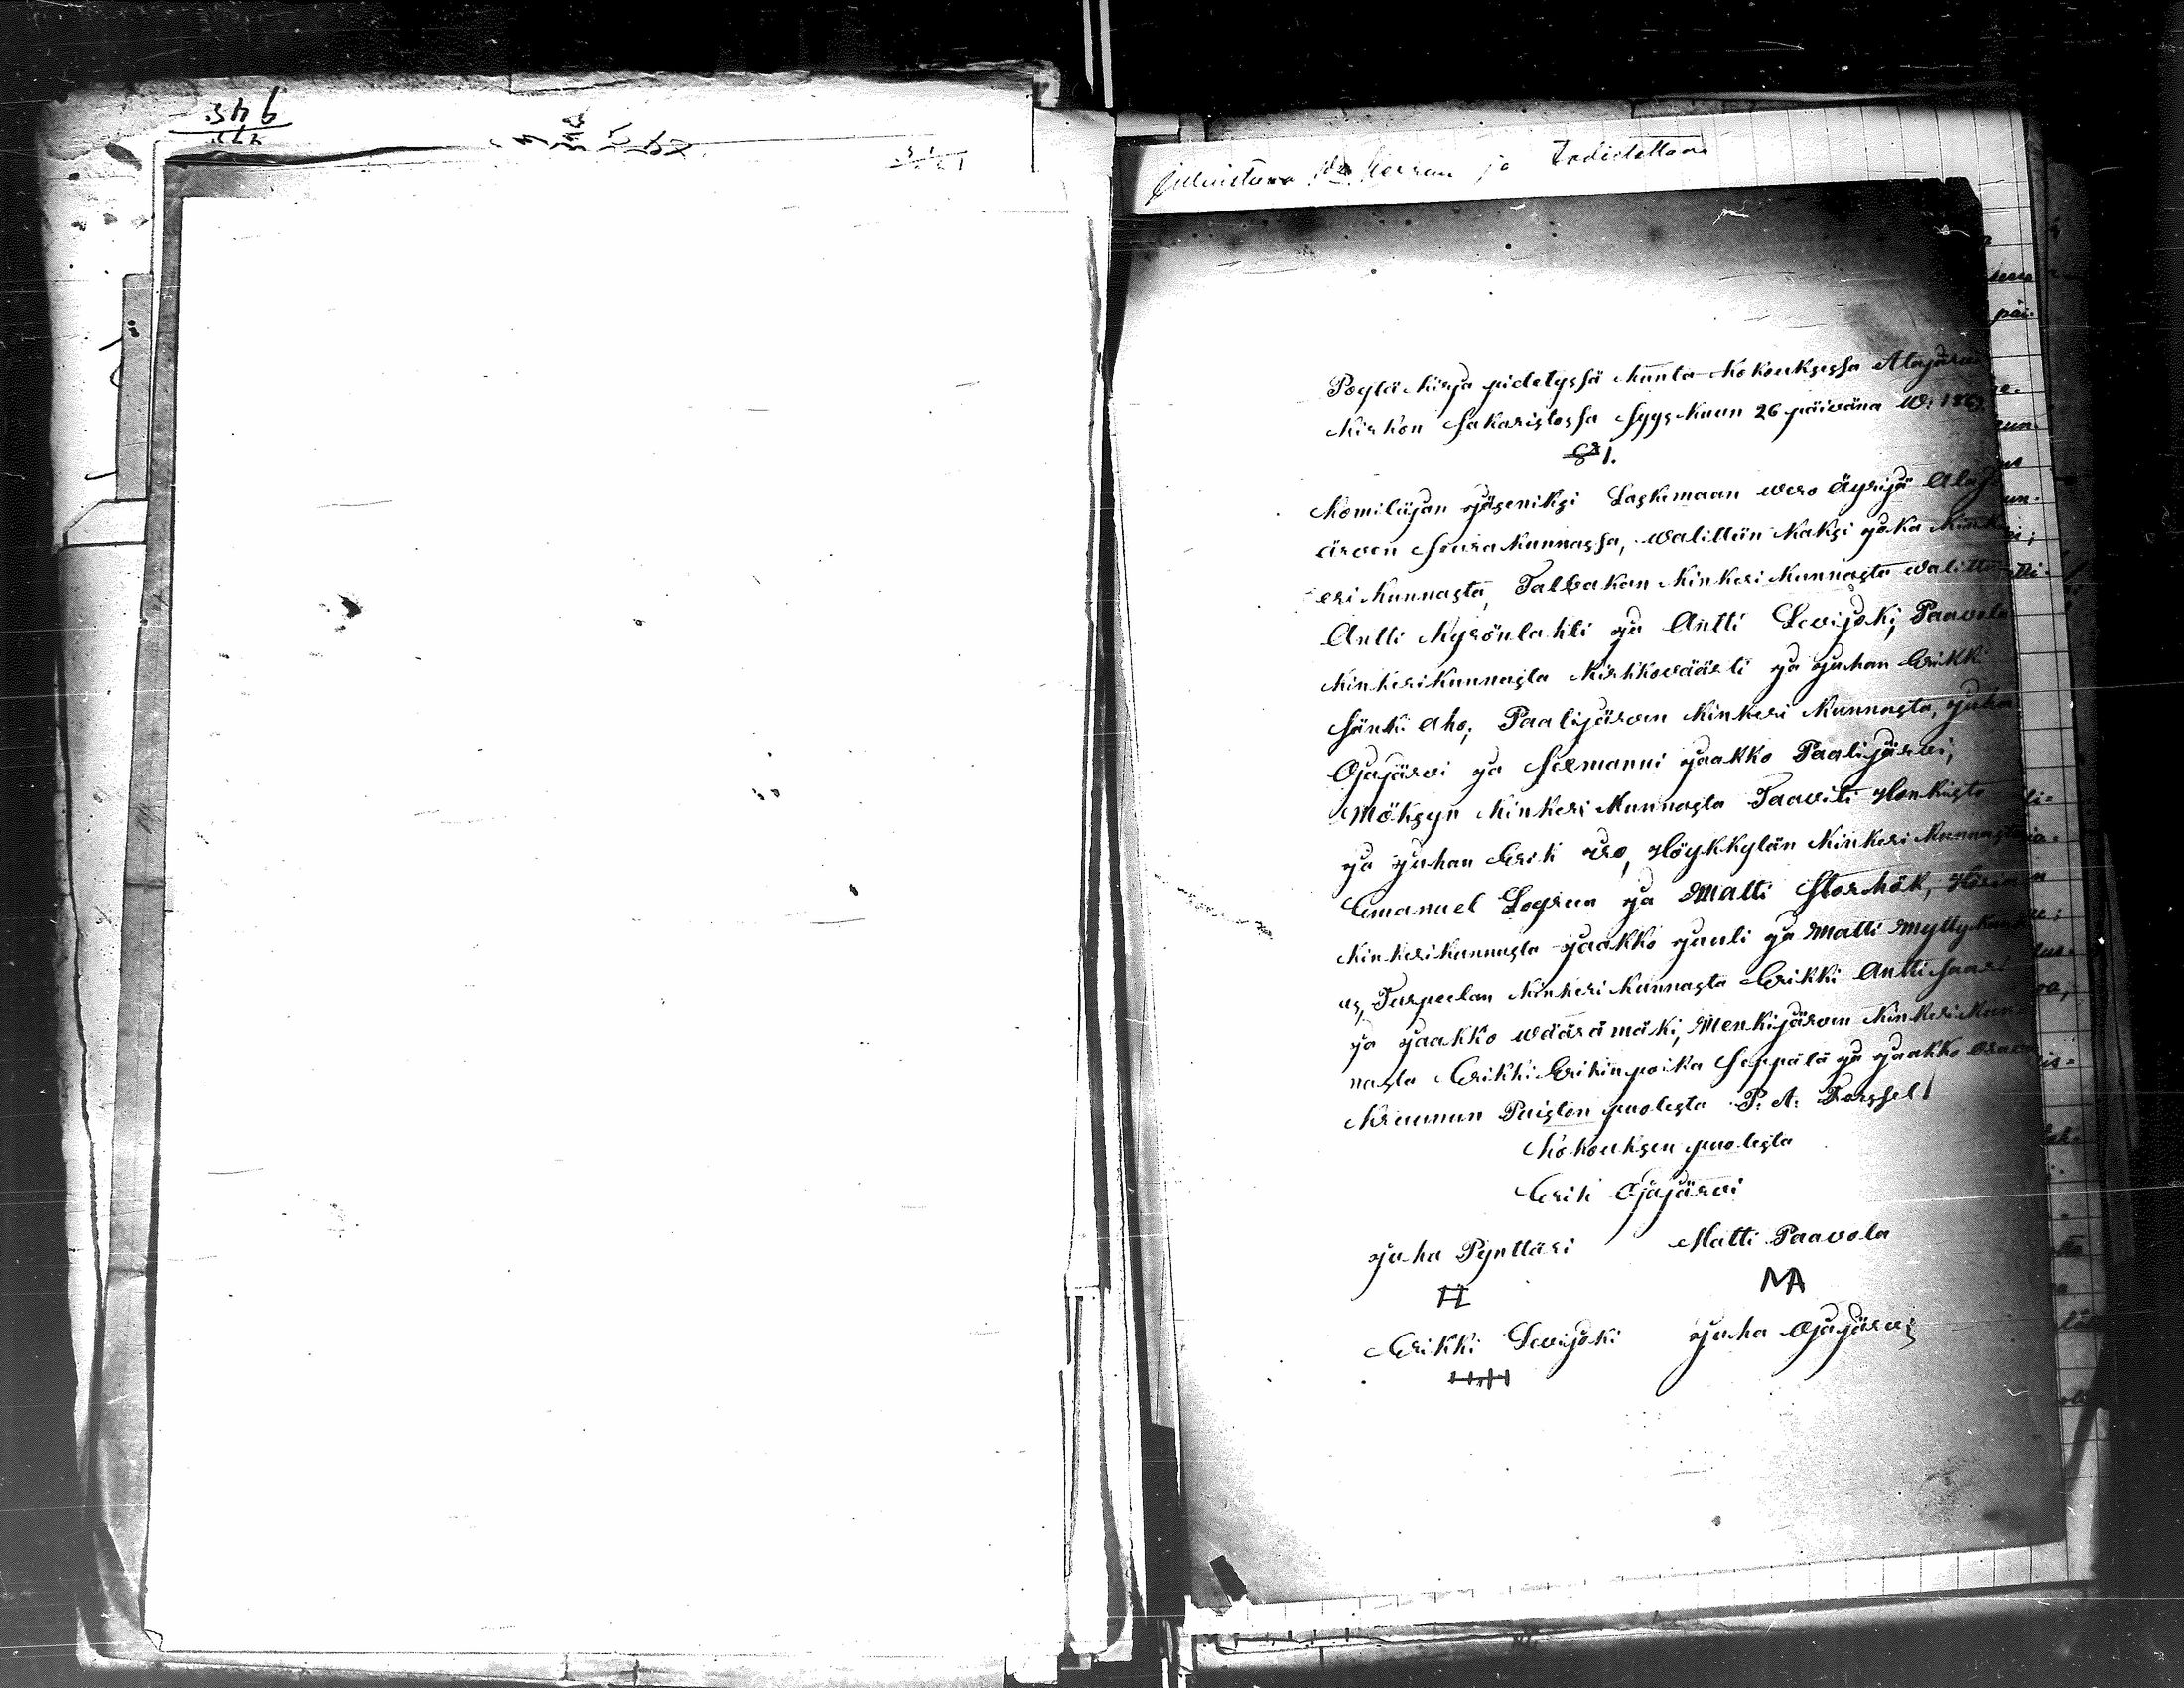 ja Todistettava
Pöytäkirja pidetyssä Kunta-Kokouksessa Alajärven
Kirkon Sakaristossa Syyskuun 26 päivänä W: 186
§ 1.
Komitijan jäseniksi Laskemaan wero Äyrijä Alaj
ärven Seurakunnassa, walittiin Kaksi joka Kink
eri Kunnasta, Talvakan Kinkeri Kunnasta walittu
Antti Kyrönlahti ja Antti Levijoki, Paavola
Kinkerikunnasta Kirkkoväärti ja Juhan Erikki
Sänki Aho; Paalijärven Kinkeri Kunnasta, Juha
Ojajärvi ja Sermanni Jaakko Paalijärvi,
Möksyn Kinkeri Kunnasta Taaviti Honkista
ja Juhan Erik Iso, Höykkylän Kinkeri Kunnasta
Emanuel Logren ja Matti Storhök,
Kinkerikunnasta Jaakko Juuli ja Matti Myllykan
as, Turpeelan Kinkeri Kunnasta Erikki Anttisaari
ja Jaakko Wäärämäki, Menkijärven Kinkeri Kun
nasta Erikki Erikinpoika Seppälä ja Jaakko
Kruunun Puiston puolesta P. A. Forssell
Kokouksen puolesta
Erik Ojajärvi
Juha Pynttäri Matti Paavola
MA
Erikki Levijoki Juha Ojajärvi